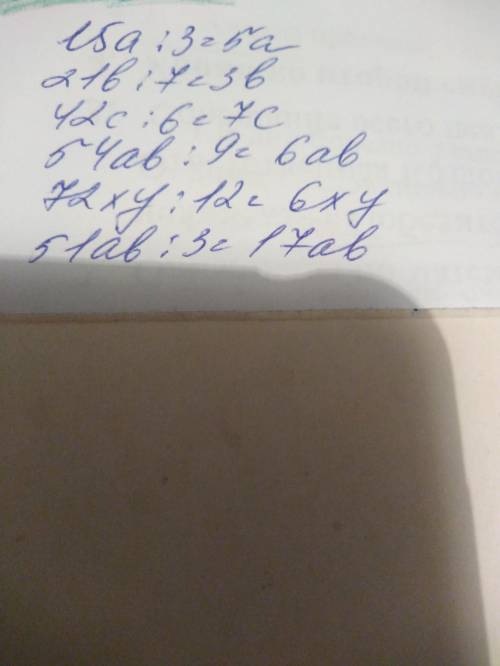 15a:3=5a
21b:7=3b
42c:6=7c
54ab:9=6ab
72xy:12=6xy
51ab:3=17ab